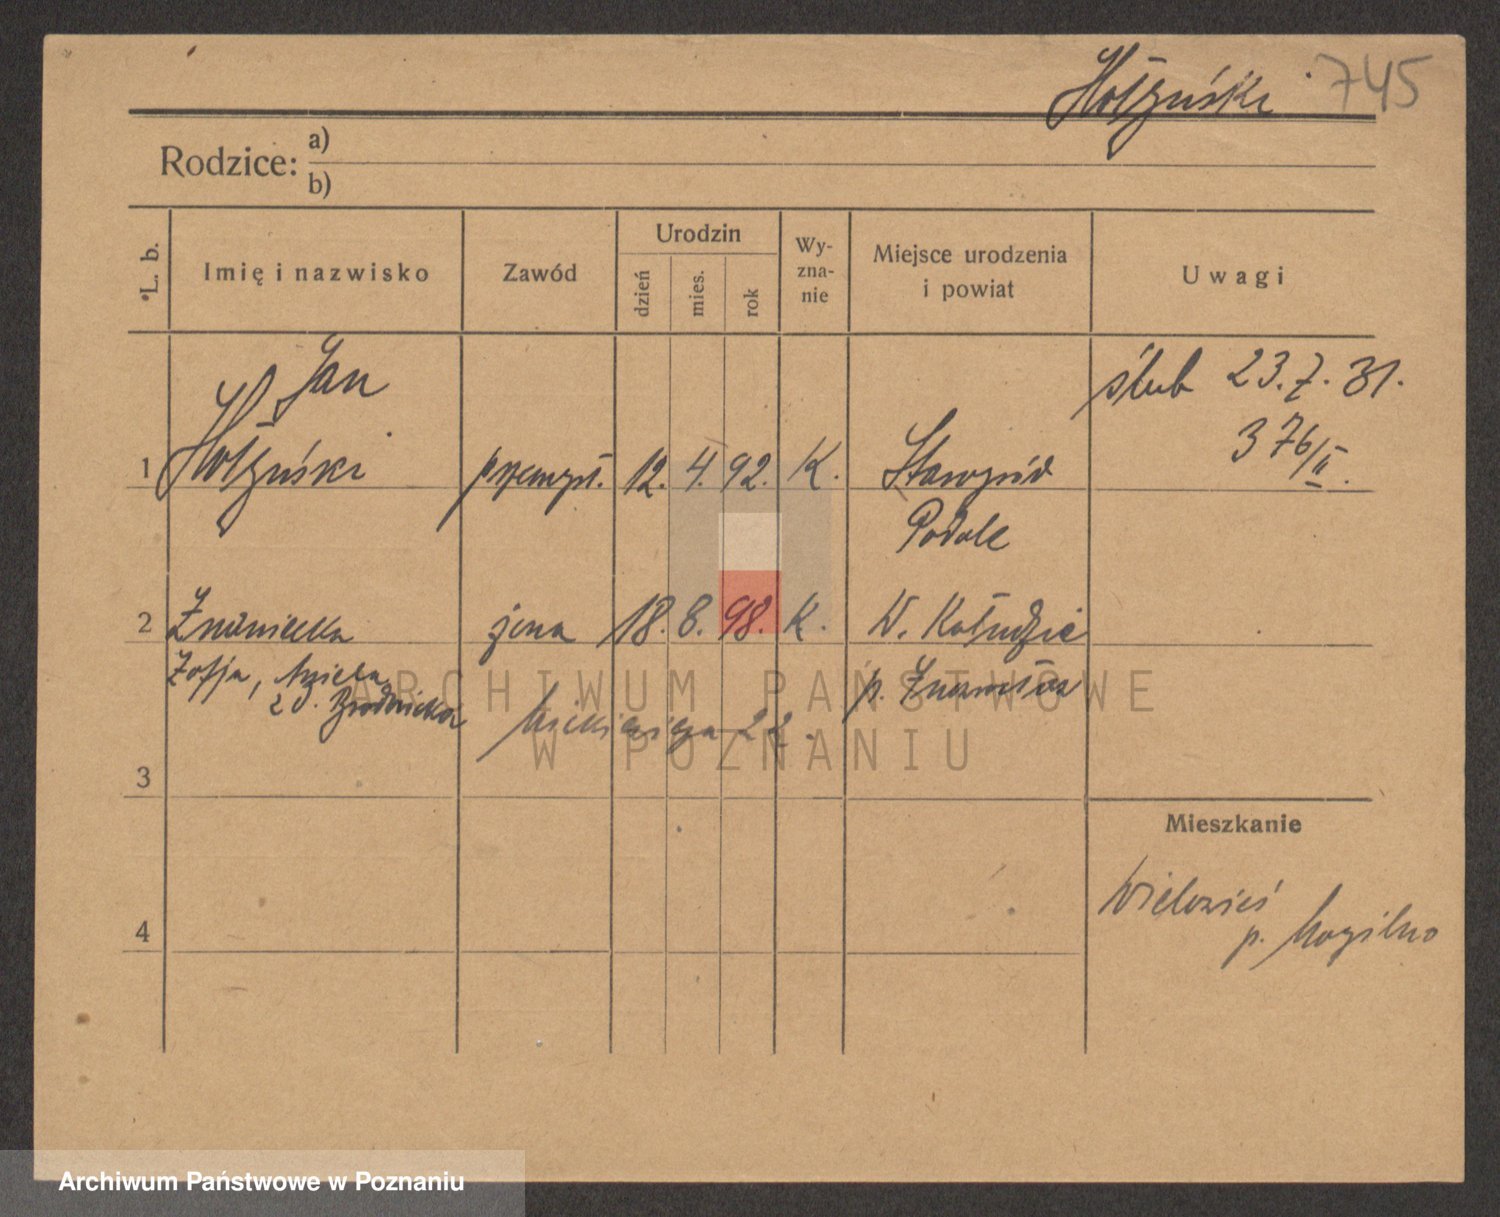 Hołyński 745
Rodzice: a)
b)
L. b. Imię i nazwisko Zawód Urodzin dzień mies. rok Wy-zna-nie Miejsce urodzenia i powiat Uwagi
Jan ślub 23.7.31.
376/II.
1 Hołyński przemysł. 12. 4. 92. K. Starogród
Podole
2 Znaniecka żona 18. 8. 98. K. W. Kołudzie
Zofja, Aniela p. Inowrocław
z d. Brodnicka
Mickiewicza 22.
ARCHIWUM PAŃSTWOWE
W POZNANIU
3
Mieszkanie
Wielowieś
p. Mogilno
4
Archiwum Państwowe w Poznaniu